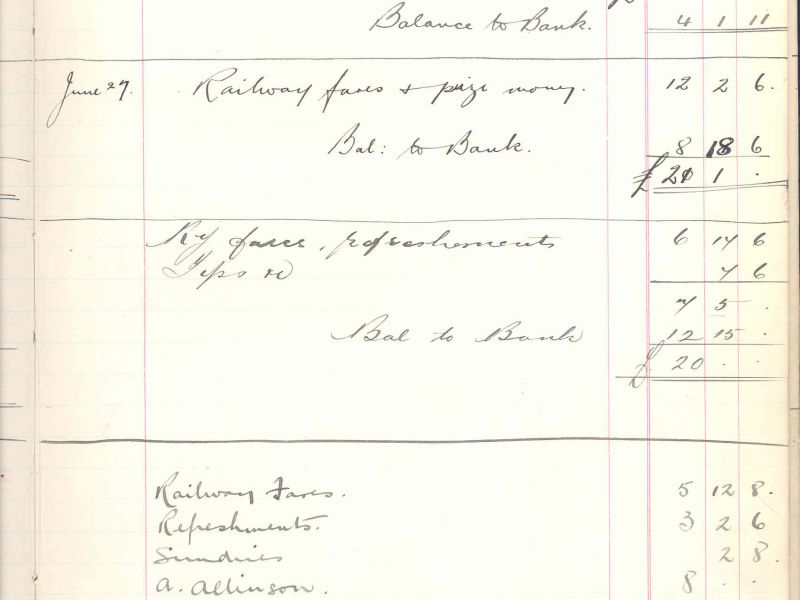 Balance to Bank. 4 1 11
June 27. Railway fares & prize money. 12 2 6.
Bal: to Bank. 8 18 6
£ 21 1 .
Ry fares, refreshements 6 17 6
Tips &c 7 6
7 5 .
Bal to Bank 12 15 .
£ 20 . .
Railway Fares. 5 12 8.
Refreshments. 3 2 6
Sundries 2 8.
A. Allinson. 8 . .